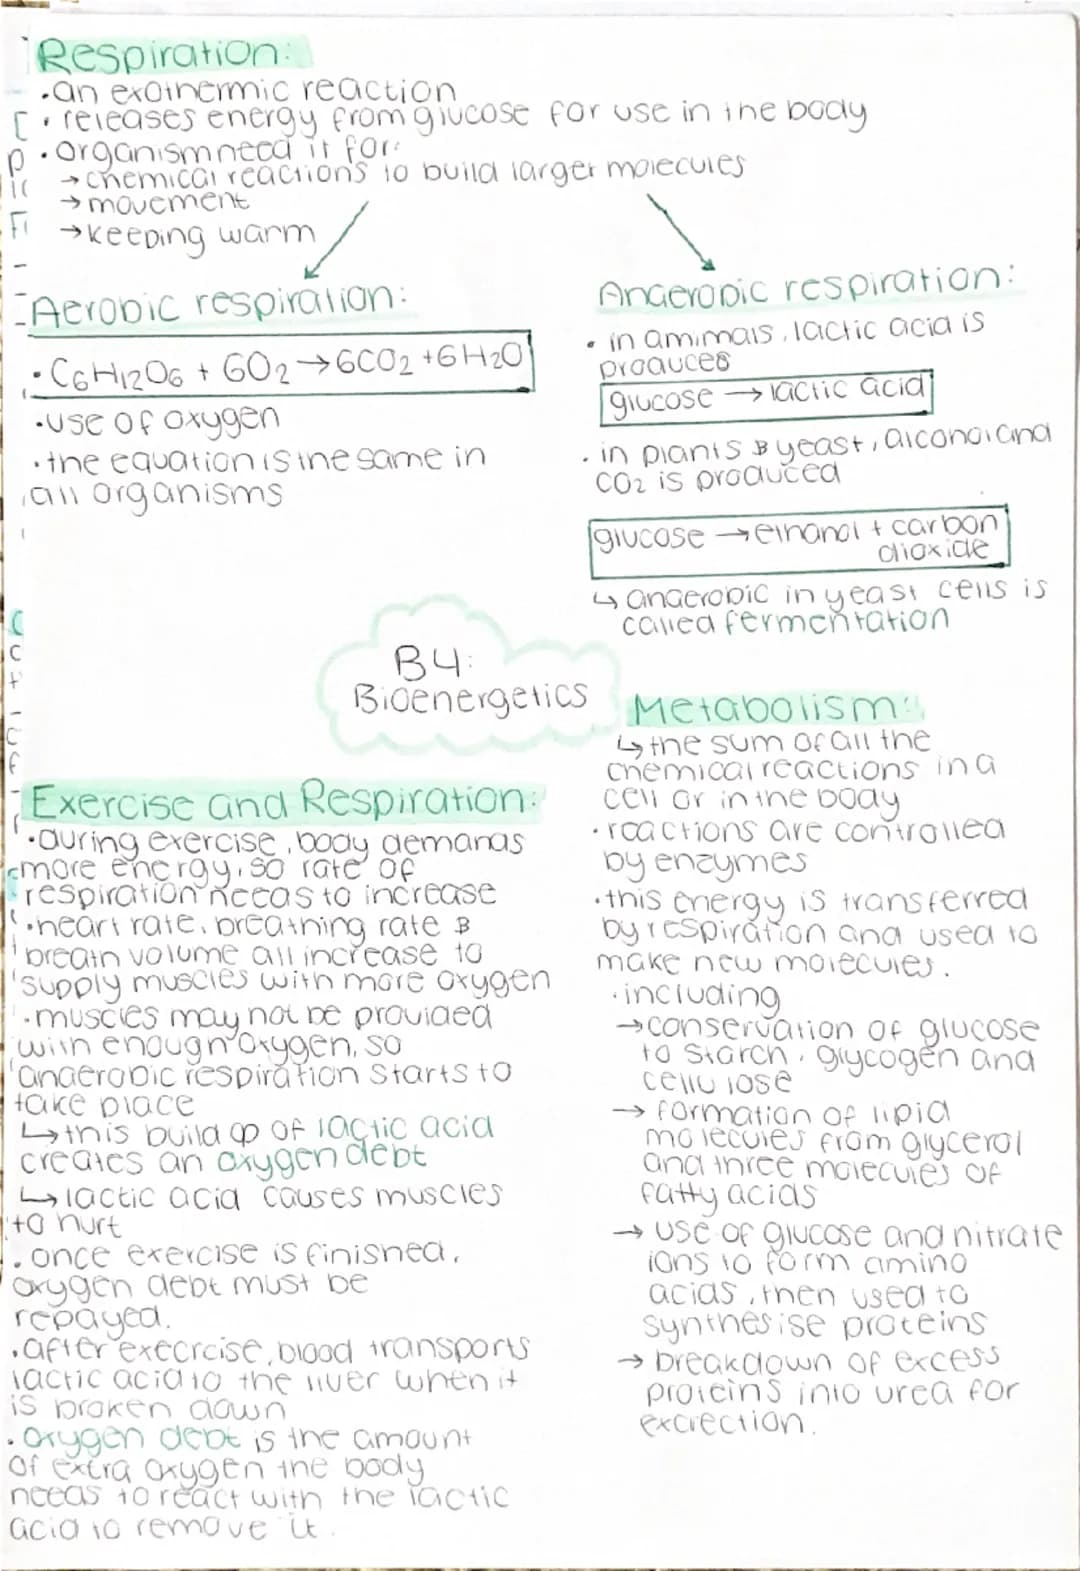 Respiration:
·an exothermic reaction
·releases energy from glucose for use in the body
·organism need it for:
→chemical reactions to build larger molecules
→movement
→keeping warm
Aerobic respiration:
·C6H12O6 + 6O2 →6CO2 +6H2O
·use of oxygen
·the equation is the same in
all organisms
Anaerobic respiration:
·in amimals, lactic acid is
produces
glucose → lactic acid
·in plants & yeast, alcohol and
CO2 is produced
glucose →ethanol + carbon
dioxide
↳ anaerobic in yeast cells is
called fermentation
B4:
Bioenergetics
Exercise and Respiration:
·during exercise, body demands
more energy, so rate of
respiration needs to increase
·heart rate, breathing rate &
breath volume all increase to
supply muscles with more oxygen
·muscles may not be provided
with enough oxygen, so
anaerobic respiration starts to
take place
↳this build up of lactic acid
creates an oxygen debt
↳lactic acid causes muscles
to hurt
·once exercise is finished,
oxygen debt must be
repayed.
·after execrcise, blood transports
lactic acid to the liver when it
is broken down
·oxygen debt is the amount
of extra oxygen the body
needs to react with the lactic
acid to remove it.
Metabolism:
↳the sum of all the
chemical reactions in a
cell or in the body
·reactions are controlled
by enzymes
·this energy is transferred
by respiration and used to
make new molecules.
·including
→conservation of glucose
to starch, glycogen and
cellulose
→ formation of lipid
molecules from glycerol
and three molecules of
fatty acids
→ use of glucose and nitrate
ions to form amino
acids, then used to
synthesise proteins
→ breakdown of excess
proteins into urea for
excrection.